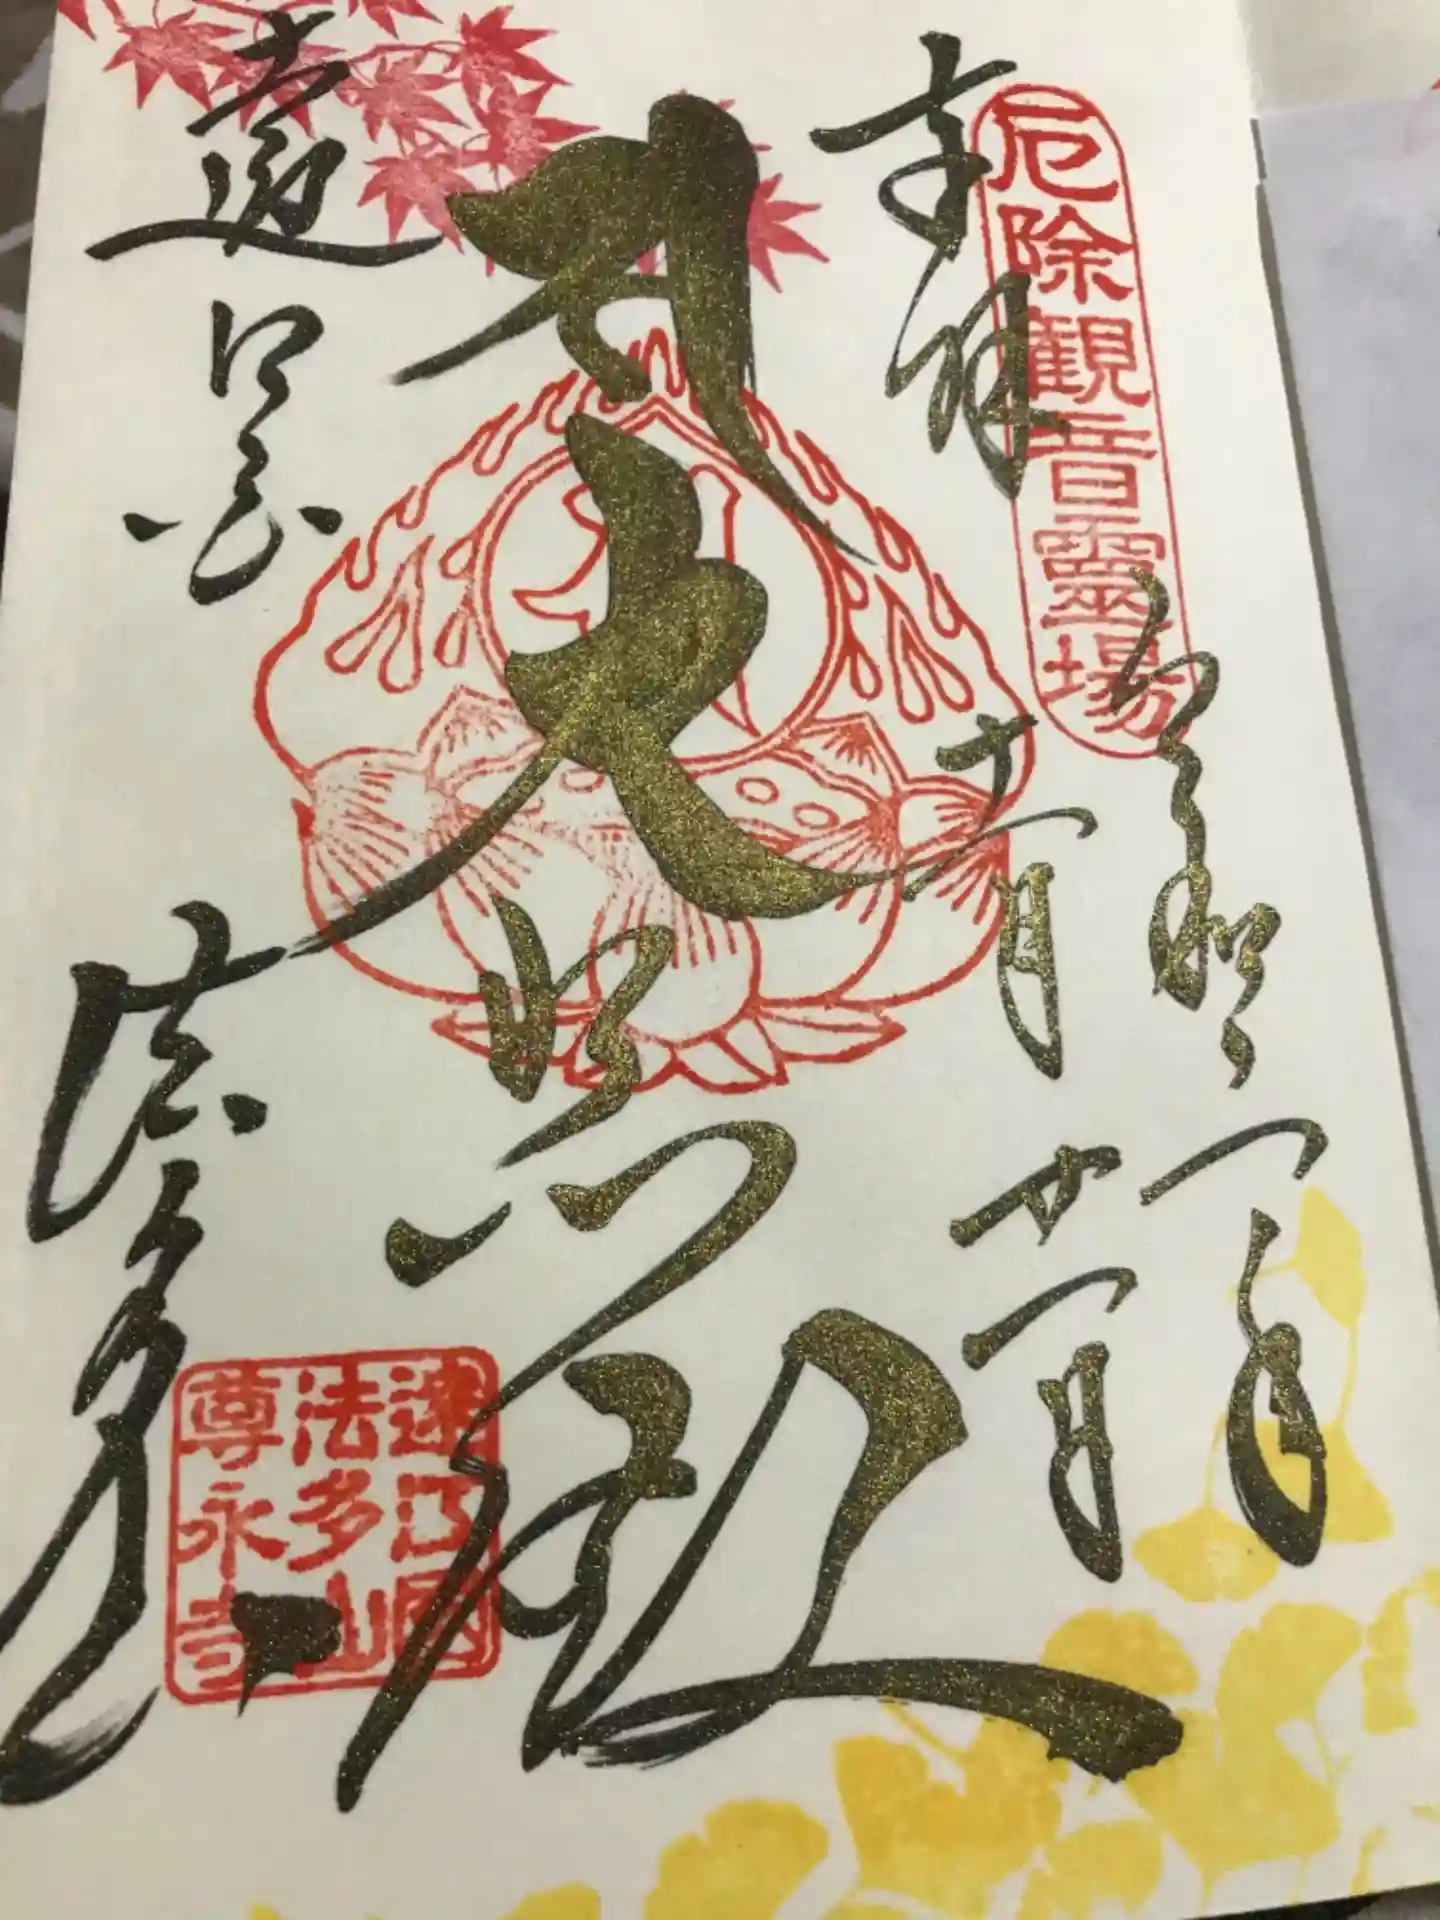 厄除観音霊場
奉拝
令和二年
十一月廿一日
大悲殿
遠江国
法多山
遠江国
法多山
尊永寺